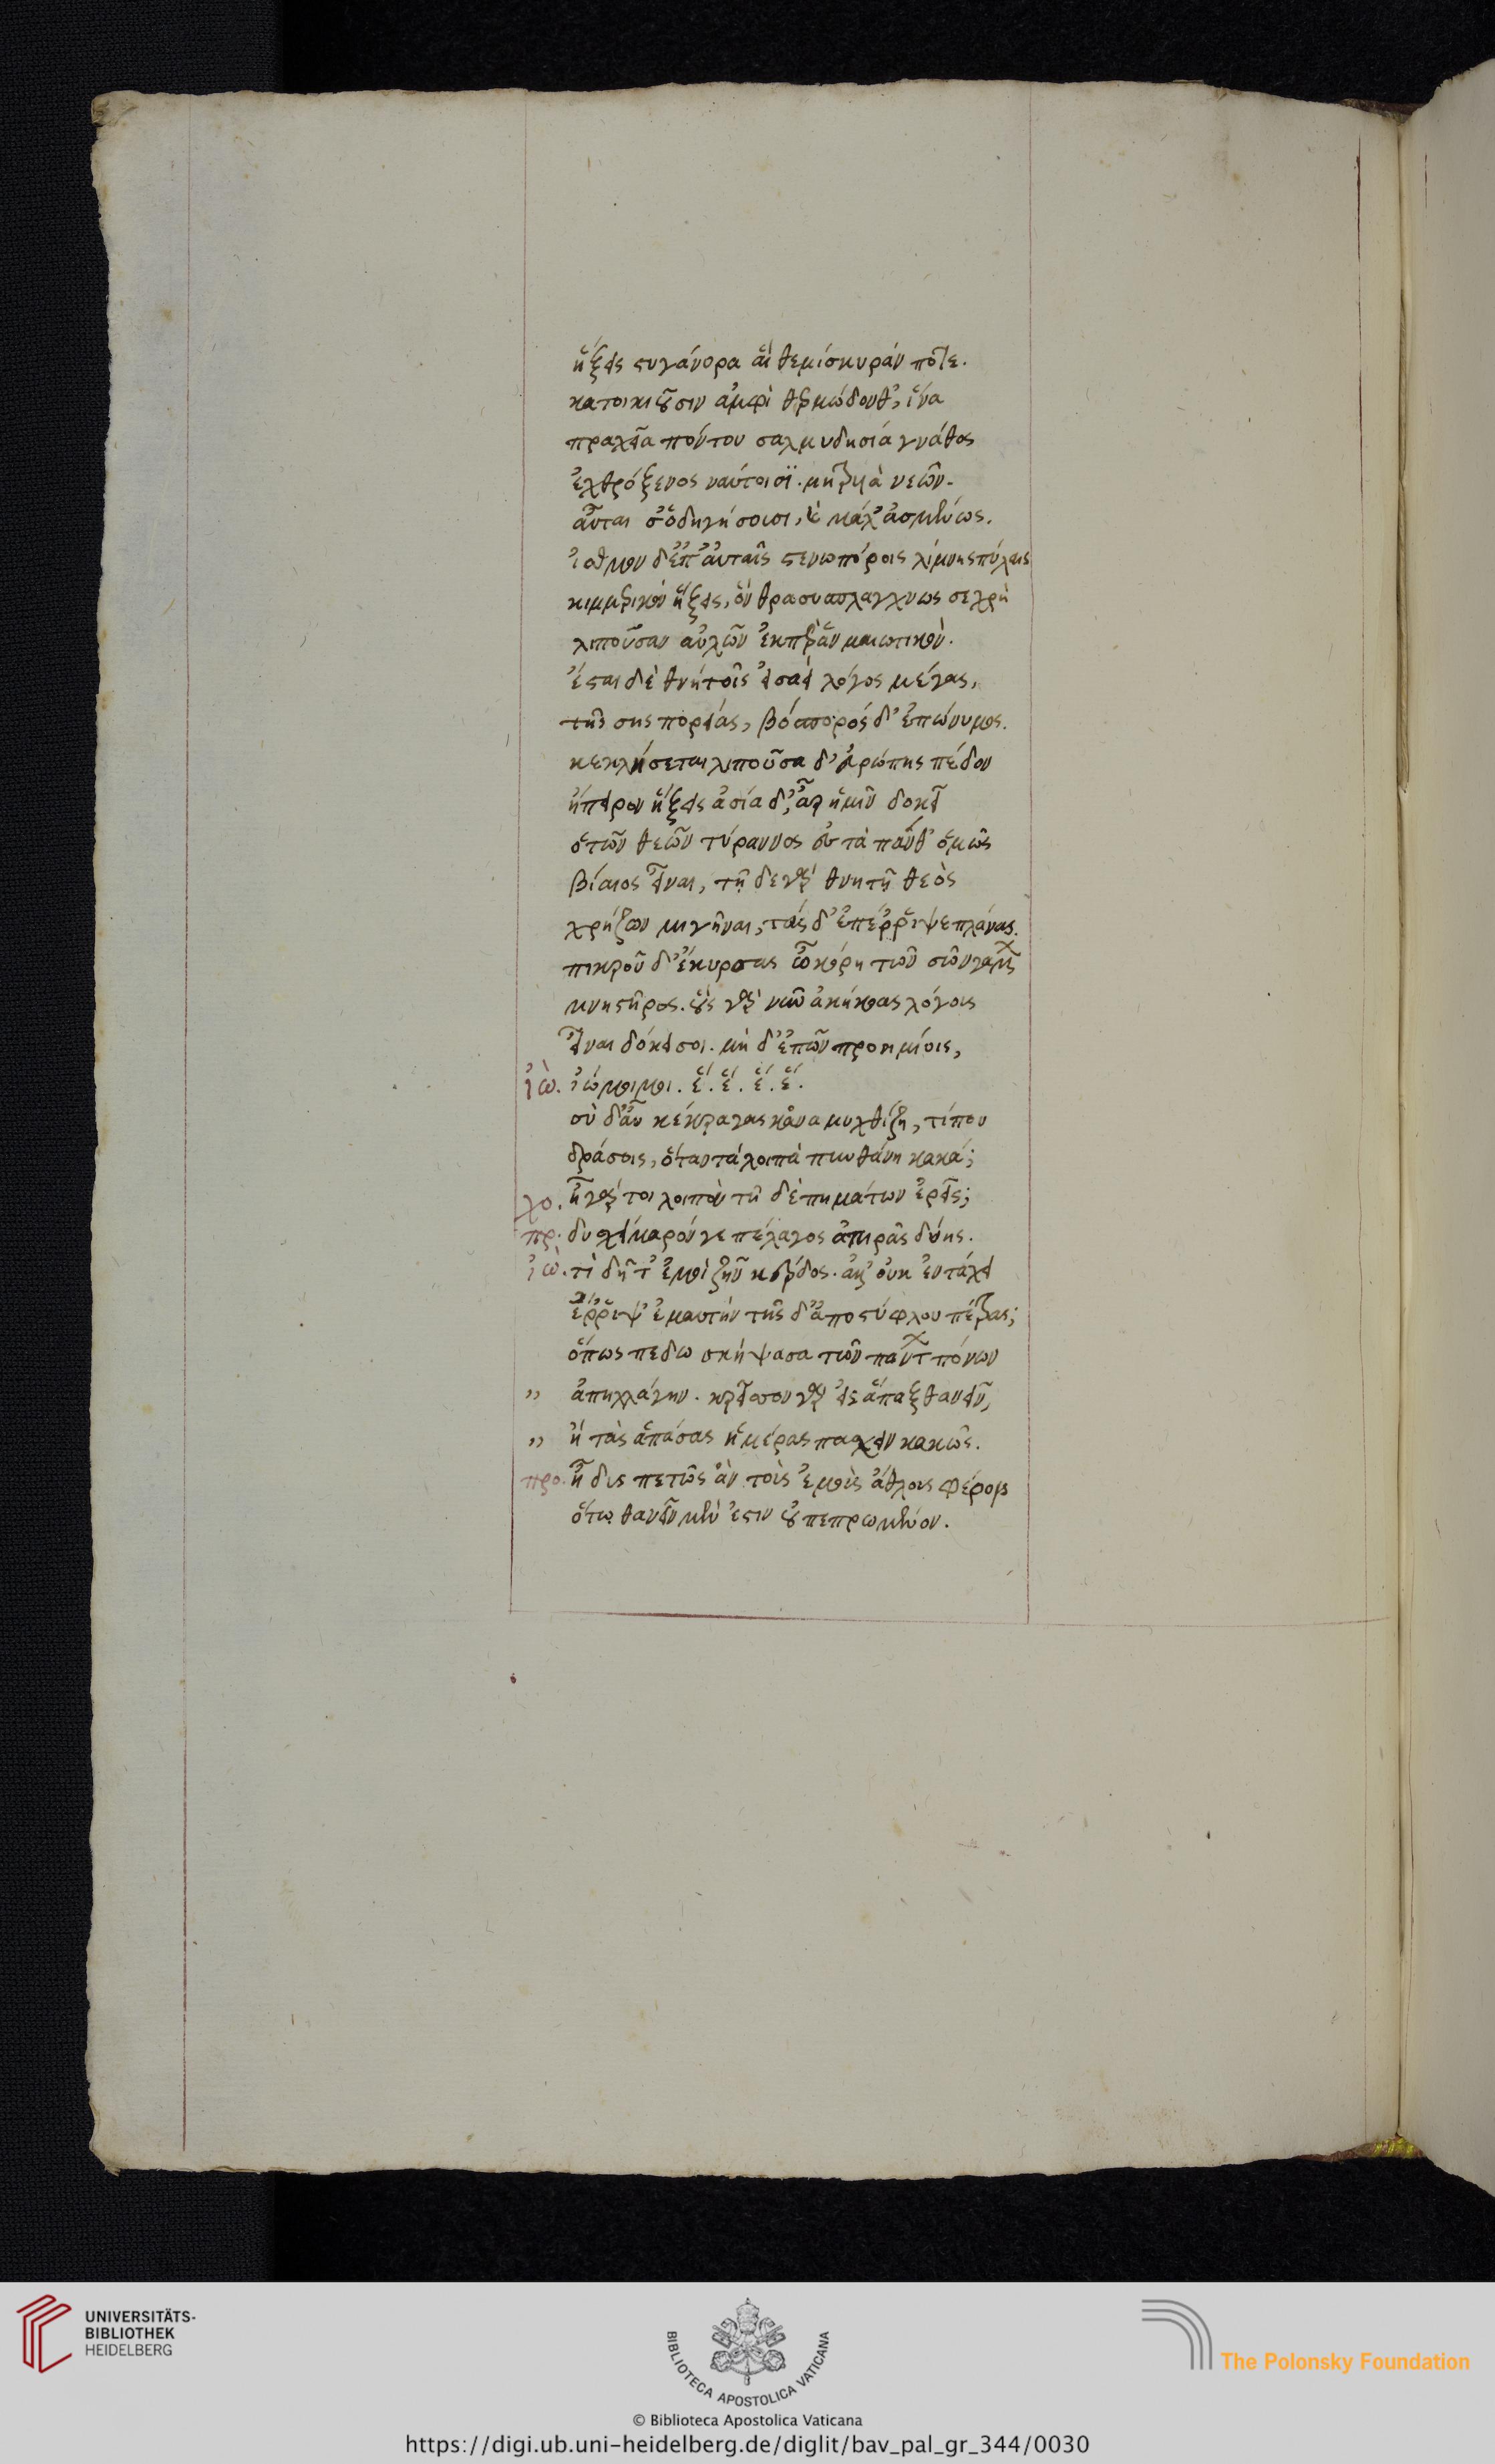 ἥξεις στυγάνορα αἳ θεμίσκυράν ποτε.
κατοικιοῦσιν ἀμφὶ θερμώδονθ', ἵνα
τραχεῖα πόντου σαλμυδησία γνάθος
ἐχθρόξενος ναύτοισϊ. μητρυιὰ νεῶν.
αὗται σ' ὁδηγήσουσι, καὶ μάλ' ἀσμένως.
ἰσθμὸν δ' ἐπ' αὐταῖς στενωπόροις λίμνης πύλαις
κιμμερικὸν ἥξεις, ὃν θρασυσπλάγχνως σε χρὴ
λιποῦσαν αὐλῶν' ἐκπερᾶν μαιωτικόν.
ἔσται δὲ θνητοῖς εἰσαεὶ λόγος μέγας,
τῆς σῆς πορείας, βόσπορός δ' ἐπώνυμος.
κεκλήσεται λιποῦσα δ' εὐρώπης πέδον
ἤπειρον ἥξεις ἀσία δ', ἆρ' ἡμῖν δοκεῖ
ὁ τῶν θεῶν τύραννος εἰς τὰ πάνθ' ὁμῶς
βίαιος εἶναι, τῇ δε γὰρ θνητῇ θεὸς
χρῄζων μιγῆναι, τάς δ' ἐπέρριψε πλάνας.
πικροῦ δ' ἔκυρσας ὦ κόρη τῶν σῶν γάμων
μνηστῆρος. οὓς γὰρ νῦν ἀκήκοας λόγους
εἶναι δόκει σοι. μὴ δ' ἐπῶν προοιμίοις,
ἰὼ. ἰώ μοι μοι. ἕ. ἕ. ἕ. ἕ.
σὺ δ' αὖ κέκραγας κἀναμυχθίζῃ, τί που
δράσεις, ὅταν τὰ λοιπὰ πυνθάνῃ κακά;
χο. ἦ γάρ τοι λοιπὸν τῇ δὲ πημάτων ἐρεῖς;
πρ. δυσχείμερόν γε πέλαγος ἀτηρᾶς δύης.
ἰὼ. τὶ δῆτ' ἐμοὶ ζῆν κέρδος. ἀλλ' οὐκ ἐν τάχει
ἔρριψ' ἐμαυτήν τῆς δ' ἀπὸ στύφλου πέτρας;
ὅπως πεδω σκήψασα τῶν πάντων πόνων
" ἀπηλλάγην. κρεῖσσον γὰρ εἰσάπαξ θανεῖν,
" ἢ τὰς ἁπάσας ἡμέρας πάσχειν κακῶς.
προ. ἦ δυσπετῶς ἂν τοὺς ἐμοὺς ἄθλους φέροις
ὅτῳ θανεῖν μέν ἐστιν οὐ πεπρωμένον.
UNIVERSITÄTS-
BIBLIOTHEK
HEIDELBERG
BIBLIOTECA APOSTOLICA VATICANA
The Polonsky Foundation
© Biblioteca Apostolica Vaticana
https://digi.ub.uni-heidelberg.de/diglit/bav_pal_gr_344/0030